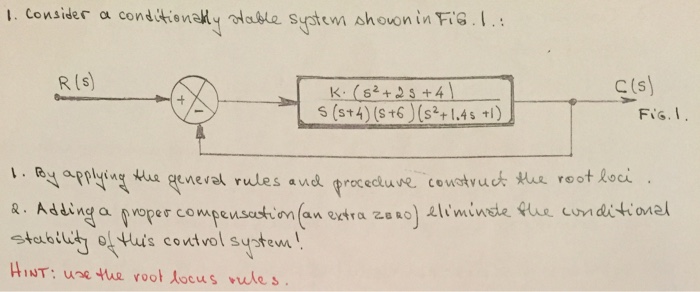 1. Consider a conditionally stable system shown in FiG. 1.:
R(s)
K. (s²+2s+4)
C(s)
+
-
S(s+4)(s+6)(s²+1.4s+1)
FiG. 1.
1. By applying the general rules and procedure construct the root loci.
2. Adding a proper compensation (an extra zero) eliminate the conditional
stability of this control system!
HINT: use the root locus rules.